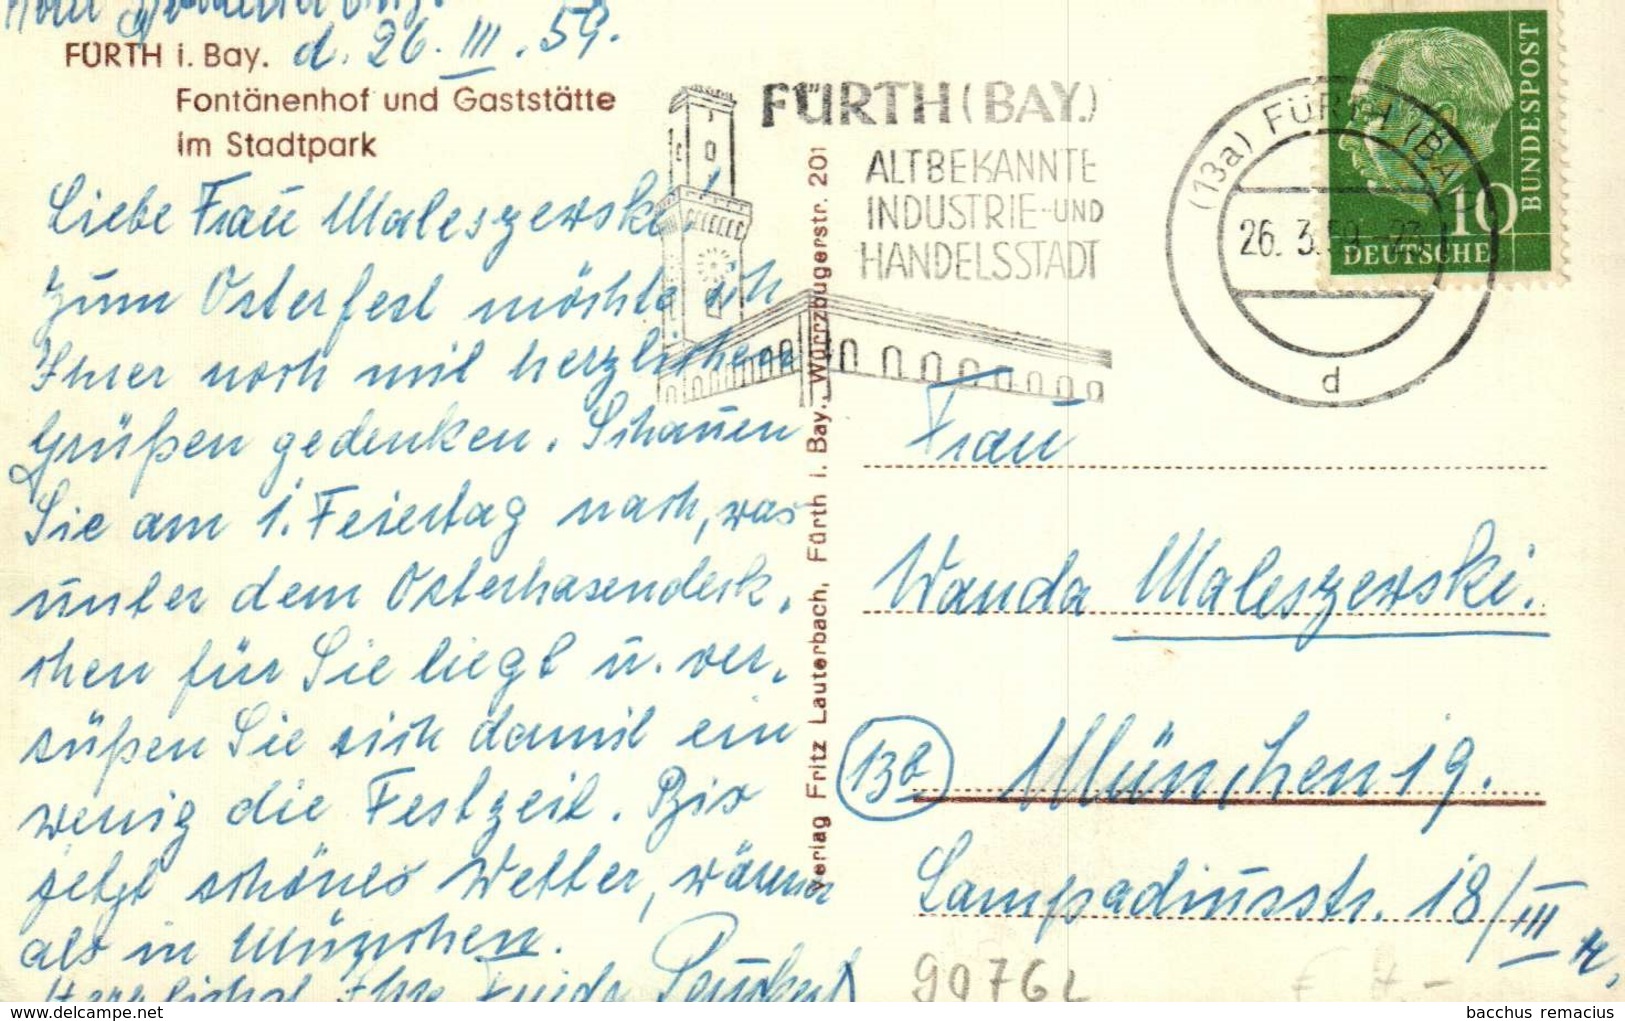 FÜRTH i. Bay. d. 26. III. 59.
Fontänenhof und Gaststätte
im Stadtpark
Liebe Frau Maleszewski!
Zum Osterfest möchte ich
Ihrer noch mit herzlichen
Grüßen gedenken. Schauen
Sie am 1. Feiertag nach, was
unter dem Osterhasendeck-
chen für Sie liegt u. ver-
süßen Sie sich damit ein
wenig die Festzeit. Bis
jetzt schönes Wetter, wärmer
als in München.
Herzlichst Ihre Frieda
Verlag Fritz Lauterbach, Fürth i. Bay. Würzburgerstr. 201
FÜRTH (BAY.)
ALTBEKANNTE
INDUSTRIE- UND
HANDELSSTADT
(13a) FÜRTH (BAY
26. 3. 59
d
10
DEUTSCHE
BUNDESPOST
Frau
Wanda Maleszewski.
13b München 19.
Lampadiusstr. 18/III r.
9076L
bacchus remacius
© www.delcampe.net